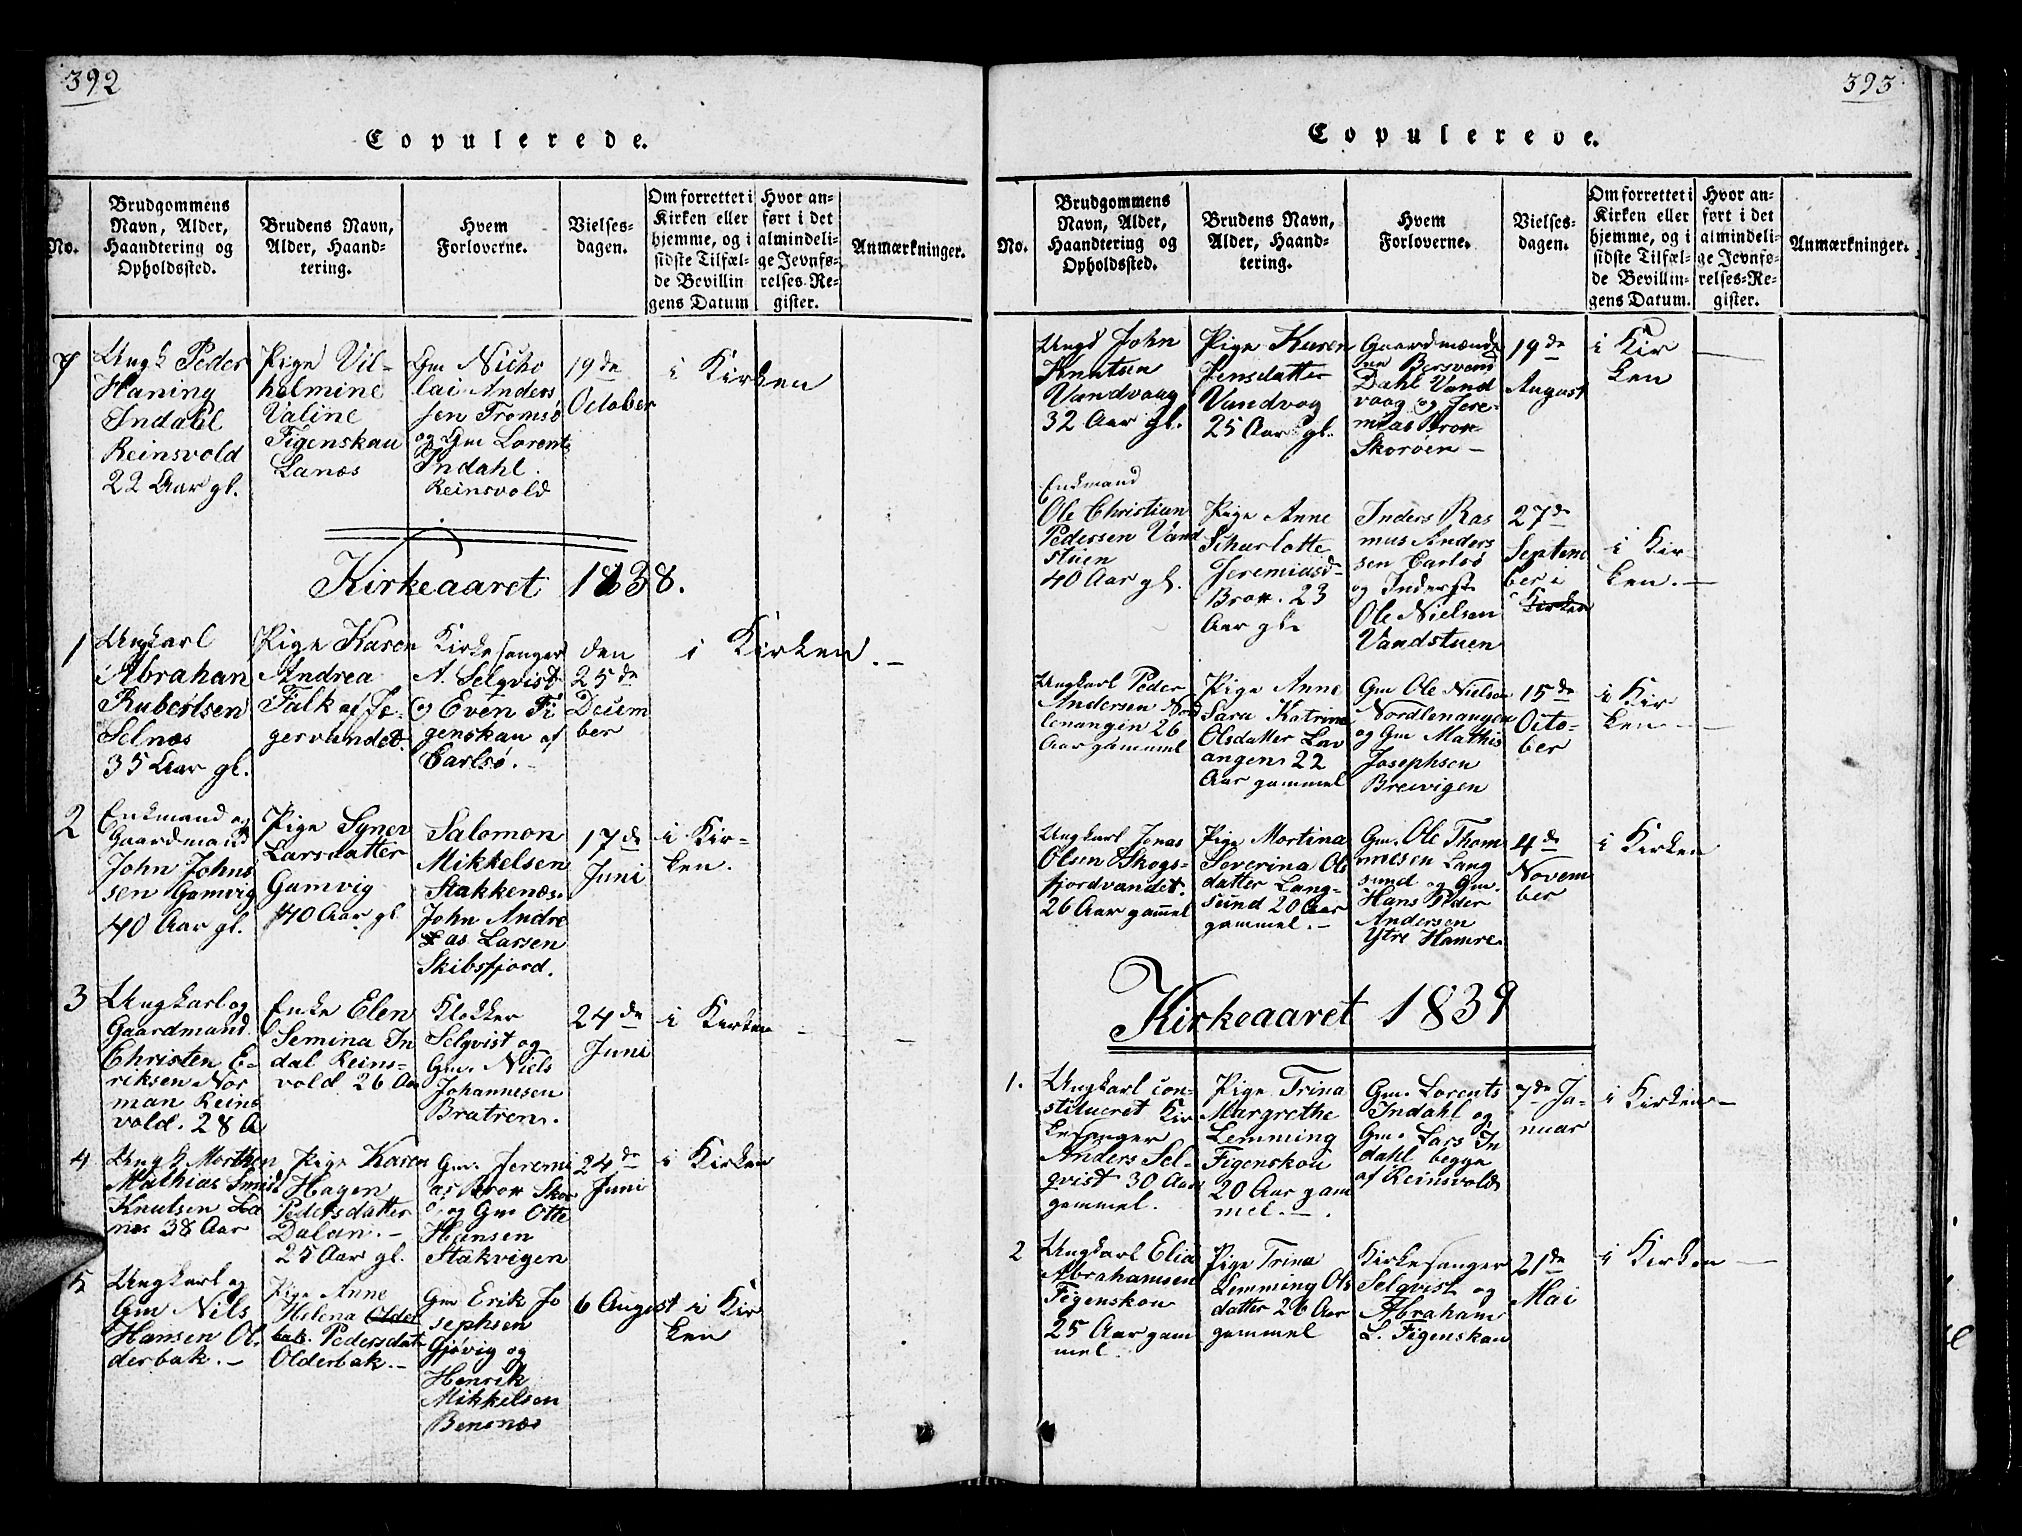 392
Copulerede.
No.
Brudgommens
Navn, Alder,
Haandtering og
Opholdssted.
Brudens Navn,
Alder, Haand-
tering.
Hvem
Forloverne.
Vielses-
dagen.
Om forrettet i
Kirken eller
hjemme, og i
sidste Tilfæl-
de Bevillin
gens Datum
Hvor an-
ført i det
almindeli-
ge Jevnfø-
relses-Re-
gister.
Anmærkninger.
7
Ungk Peder
Haning
Indahl
Reinsvold
22 Aar gl.
Pige Vil-
helmine
Valine
Figenskau
Lanæs
Gm Nicho
lai Anders
sen Tromsø
og Gm Lorents
Indahl.
Reinsvold
19de
October
i Kirken
Kirkeaaret 1838.
1
Ungkarl
Abraham
Rubertsen
Selnæs
35 Aar gl.
Pige Karen
Andrea
Falk af Jæ-
gervandet.
Kirkesanger
A. Selqvist
og Even Fi
genskau af
Carlsø.
den
25de
Decem
ber
i Kirken.
2
Enkmand og
Gaardmand
John Johns
sen Gamvig
40 Aar gl.
Pige Synev
Larsdatter
Gamvig
40 Aar gl.
Salomon
Mikkelsen
Stakkenæs.
John Andre
as Larsen
Skibsfjord.
17de
Juni
i Kir-
ken.
3
Ungkarl og
Gaardmand
Christen E-
riksen Nor
man Reins
vold. 28 A
Enke Elen
Semina In
dal Reins-
vold 26 Aar
Klokker
Selqvist og
Gm. Niels
Johannesen
Bratren.
24de
Juni
i Kirken
4
Ungk Morthen
Mathias Smidt
Knutsen La
næs 38 Aar
Pige Karen
Hagen
Pedersdatter
Dalan.
25 Aar gl.
Gm. Jeremi
as Brox Skor
ø, og Gm Otte
Hansen
Stakvigen
24de
Juni
i Kirken
5
Ungkarl og
Gm Nils
Hansen Ol-
derbak.
Pige Anne
Helena Older
bak Pedersdat
Olderbak.
Gm Erik Jo
sephsen
Gjøvig og
Henrik
Mikkelsen
Bensnæs
6 August
i Kir
ken
393
Copulerede.
No.
Brudgommens
Navn, Alder,
Haandtering og
Opholdssted.
Brudens Navn,
Alder, Haand-
tering.
Hvem
Forloverne.
Vielses-
dagen.
Om forrettet i
Kirken eller
hjemme, og i
sidste Tilfæl-
de Bevillin-
gens Datum.
Hvor an-
ført i det
almindeli-
ge Jevnfø-
relses-Re-
gister.
Anmærkninger.
Ungk John
Knutsen
Vandvaag
32 Aar gl.
Pige Karen
Jensdatter
Vandvog
25 Aar gl.
Gaardmænde
ne Bersvend
Dahl Vand
vaag og Jere-
mias Brox
Skorøen
19de
August
i Kir
ken
Enkmand
Ole Christian
Pedersen Vand
stuen
40 Aar gl.
Pige Anne
Scharlotte
Jeremiasd-
Brox. 23
Aar gl.
Inders Ras
mus Anders
sen Carlsø
og Inderst
Ole Nielsen
Vandstuen
27de
Septem
ber i
Kirken
i Kir-
ken.
Ungkarl Peder
Andersen Nord
lenangen 26
Aar gammel
Pige Anne
Sara Katrina
Olsdatter Lav
angen 22
Aar gammel
Gm Ole Nielsen
Nordlenangen
og Gm Mathis
Josephsen
Breivigen
15de
Octo-
ber
i Kir
ken
Ungkarl Jonas
Olsen Skogs-
fjordvandet.
26 Aar gammel
Pige Mortina
Severina Ols
datter Lang-
sund 20 Aar
gammel.
Gm. Ole Thom
mesen Lang
sund og Gm.
Hans Peder
Andersen
Ytre Hamre
4de
Novem
ber
i Kirken
Kirkeaaret 1839
1.
Ungkarl con-
stitueret Kir
kesanger
Anders Sel-
qvist 30 Aar
gammel.
Pige Trina
Margrethe
Lemming
Figenskou
20 Aar gam
mel.
Gm. Lorents
Indahl og
Gm. Lars In
dahl begge
af Reinsvold
7de Ja-
nuar
i Kirken
2
Ungkarl Elia
Abrahamsen
Figenskou
25 Aar gam
mel.
Pige Trina
Lemming Ols
datter 26 Aar
gammel
Kirkesanger
Selqvist og
Abraham
L. Figenskau
21de
Mai
i Kirken